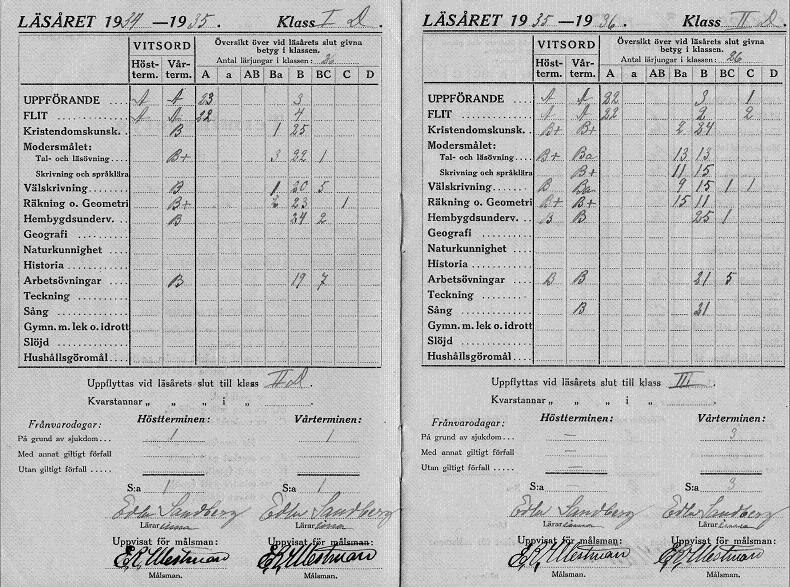 LÄSÅRET 1934—1935. Klass I D
VITSORD Översikt över vid läsårets slut givna betyg i klassen.
Antal lärjungar i klassen: 26
Höst-term. Vår-term. A a AB Ba B BC C D
UPPFÖRANDE .... A A 23 3
FLIT .......... A A 22 4
Kristendomskunsk. B 1 25
Modersmålet:
Tal- och läsövning ..... B+ 3 22 1
Skrivning och språklära
Välskrivning ...... B 1 20 5
Räkning o. Geometri B+ 2 23 1
Hembygdsunderv. B 24 2
Geografi ..........
Naturkunnighet ...
Historia ..........
Arbetsövningar .... B 19 7
Teckning ........
Sång ............
Gymn. m. lek o. idrott
Slöjd ...........
Hushållsgöromål ...
Uppflyttas vid läsårets slut till klass II D.
Kvarstannar „ „ „ i „
Frånvarodagar: Höstterminen: Vårterminen:
På grund av sjukdom... 1 1
Med annat giltigt förfall
Utan giltigt förfall .....
S:a 1 S:a 1
Edla Sandberg Edla Sandberg
Lärarinna Lärarinna
Uppvisat för målsman: Uppvisat för målsman:
E.K. Westman E.K. Westman
Målsman. Målsman.
LÄSÅRET 1935—1936. Klass II D
VITSORD Översikt över vid läsårets slut givna betyg i klassen.
Antal lärjungar i klassen: 26
Höst-term. Vår-term. A a AB Ba B BC C D
UPPFÖRANDE .... A A 22 3 1
FLIT .......... A A 22 2 2
Kristendomskunsk. B+ B+ 2 24
Modersmålet:
Tal- och läsövning ..... B+ Ba 13 13
Skrivning och språklära B+ 11 15
Välskrivning ...... B Ba 9 15 1 1
Räkning o. Geometri B+ B+ 15 11
Hembygdsunderv. B B 25 1
Geografi ..........
Naturkunnighet ...
Historia ..........
Arbetsövningar .... B B 21 5
Teckning ........
Sång ............ B 21
Gymn. m. lek o. idrott
Slöjd ...........
Hushållsgöromål ...
Uppflyttas vid läsårets slut till klass III.
Kvarstannar „ „ „ i „
Frånvarodagar: Höstterminen: Vårterminen:
På grund av sjukdom... — 3
Med annat giltigt förfall —
Utan giltigt förfall ..... —
S:a — S:a 3
Edla Sandberg Edla Sandberg
Lärarinna Lärarinna
Uppvisat för målsman: Uppvisat för målsman:
E.K. Westman E.K. Westman
Målsman. Målsman.